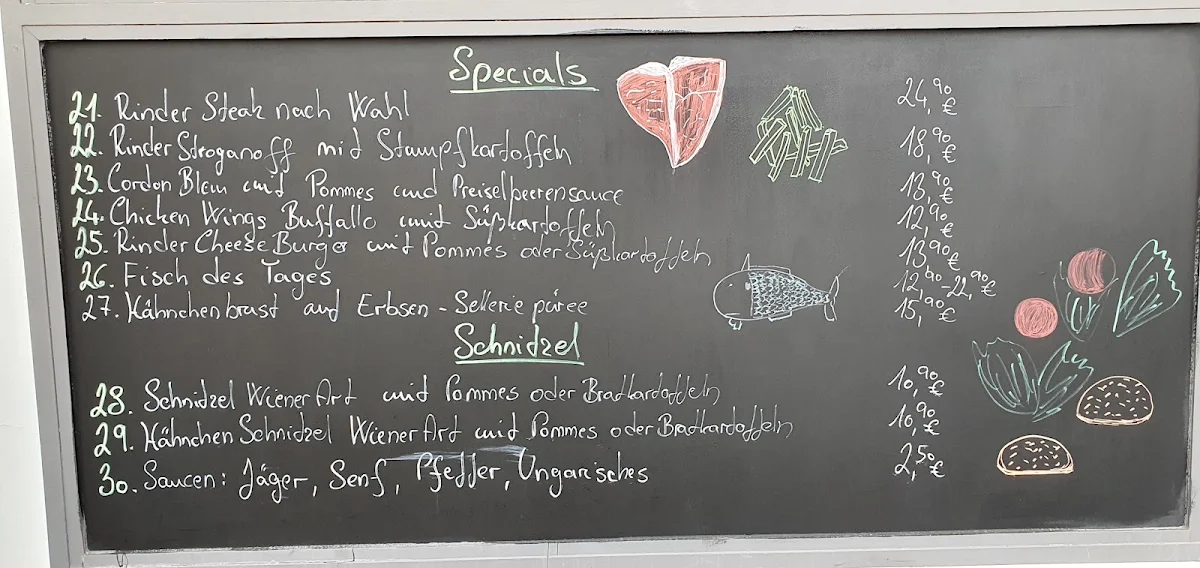 Specials
21. Rinder Steak nach Wahl 24,90 €
22. Rinder Stroganoff mit Stampfkartoffeln 18,90 €
23. Cordon Bleu mit Pommes und Preiselbeerensauce 13,90 €
24. Chicken Wings Buffallo mit Süßkartoffeln 12,90 €
25. Rinder Cheese Burger mit Pommes oder Süßkartoffeln 13,90 €
26. Fisch des Tages 12,90-22,90 €
27. Hähnchenbrust auf Erbsen-Sellerie püree 15,90 €
Schnitzel
28. Schnitzel Wiener Art mit Pommes oder Bratkartoffeln 10,90 €
29. Hähnchen Schnitzel Wiener Art mit Pommes oder Bratkartoffeln 10,90 €
30. Saucen: Jäger, Senf, Pfeffer, Ungarisches 2,50 €